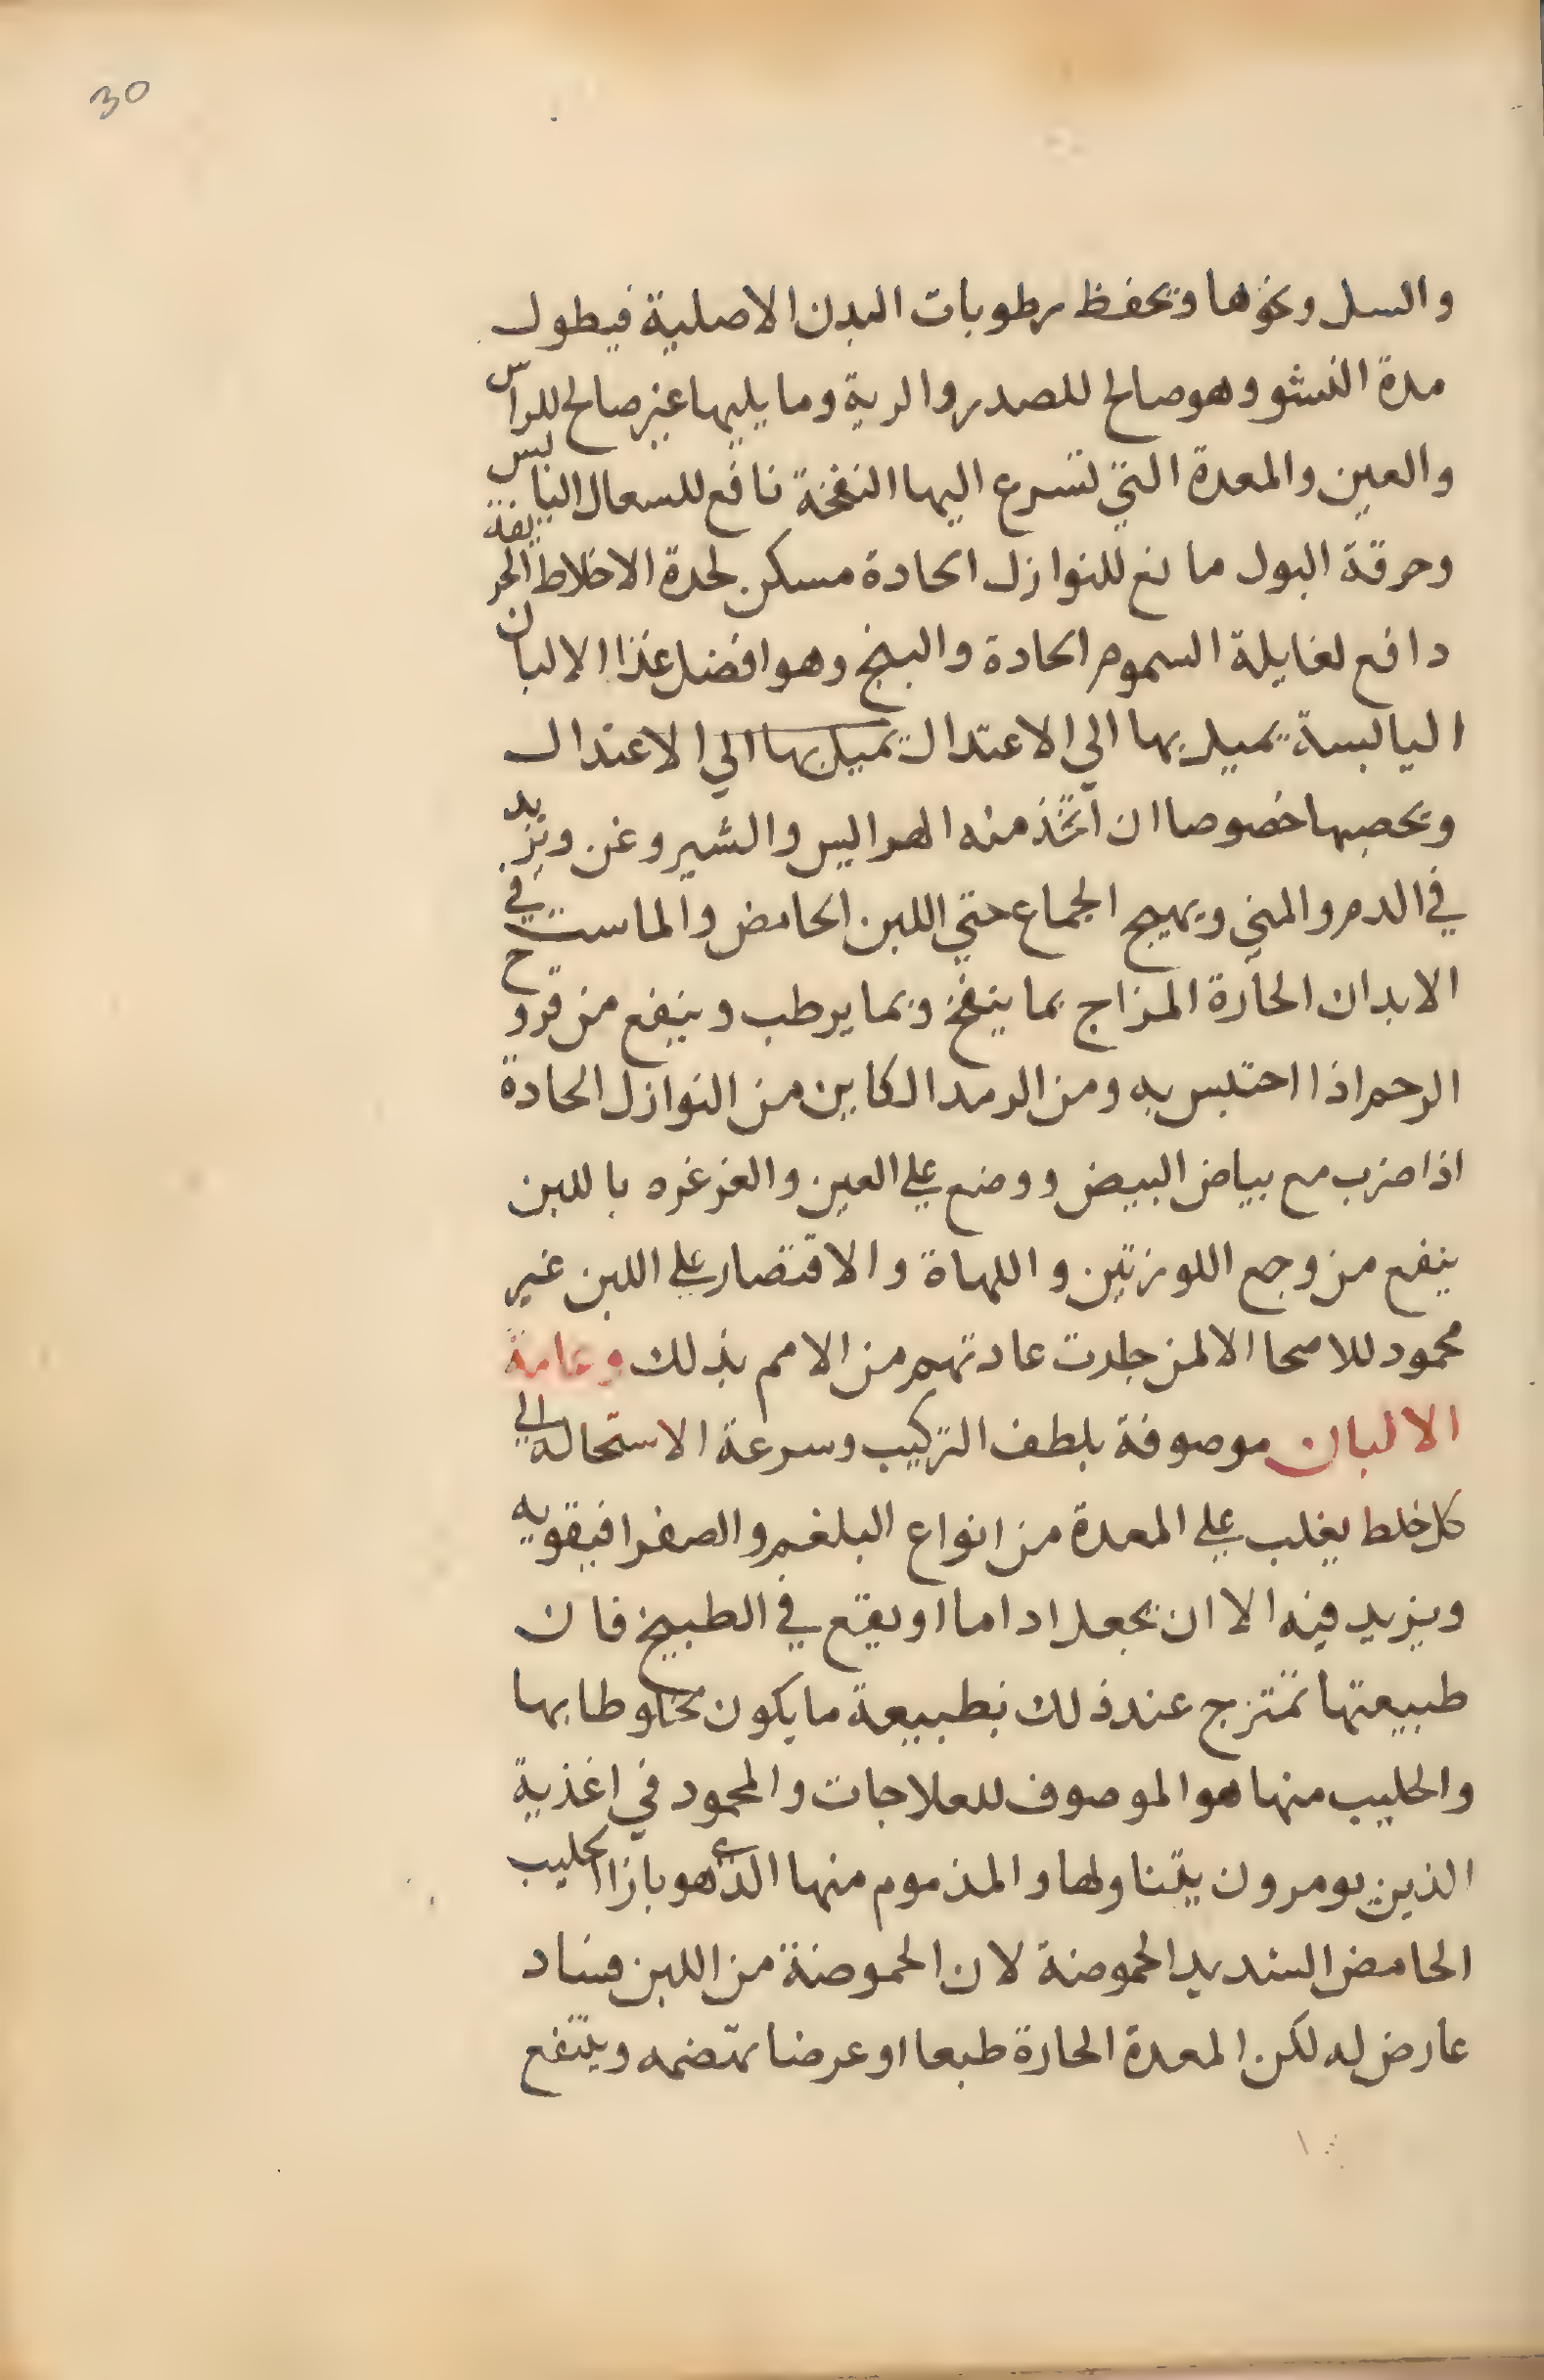 30
والسل ونحوها ويحفظ رطوبات البدن الاصلية فيطول
مدة النشو وهو صالح للصدر والرية وما يليها غير صالح للراس
والعين والمعدة التي تسرع اليها النفخة نافع للسعال اليابس
وحرقة البول مانع للنوازل الحادة مسكن لحدة الاخلاط الحريفة
دافع لغايلة السموم الحادة والبنج وهو افضل غذا الالبان
اليابسة يميل بها الي الاعتدال يميل بها الي الاعتدال
ويخصبها خصوصا ان اتخذ منه الهرايس والشيروغن ويزيد
في الدم والمني ويهيج الجماع حتي اللبن الحامض والماست في
الابدان الحارة المزاج بما ينفخ وبما يرطب وينفع من قروح
الرحم اذا احتبس به ومن الرمد الكاين من النوازل الحادة
اذا ضرب مع بياض البيض ووضع علي العين والغرغره باللبن
ينفع من وجع اللوزتين واللهاة والاقتصار علي اللبن غير
محمود للاصحا الا لمن جلدت عادتهم من الامم بذلك وعامة
الالبان موصوفة بلطف التركيب وسرعة الاستحالة الي
كل خلط يغلب علي المعدة من انواع البلغم والصفرا فيقويه
ويزيد فيه الا ان يجعل اداما او يقع في الطبيخ فان
طبيعتها تمتزج عند ذلك بطبيعة ما يكون مخلوطا بها
والحليب منها هو الموصوف للعلاجات والمحمود في اغذية
الذين يومرون بتناولها والمذموم منها الذي هو بازا الحليب
الحامض الشديد الحموضة لان الحموضة من اللبن فساد
عارض له لكن المعدة الحارة طبعا او عرضا تهضمه وينتفع